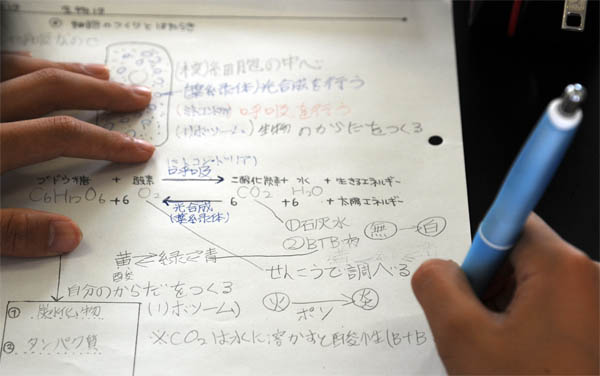 生物は
細胞のつくりとはたらき
なので
(核)細胞の中心
(葉緑体)光合成を行う
(ミトコンドリア)呼吸を行う
(リボソーム)生物のからだをつくる
(ミトコンドリア)
呼吸
ブドウ糖 + 酸素 → 二酸化炭素 + 水 + 生きるエネルギー
C6H12O6 +6 O2 ← 6 CO2 6 H2O + 太陽エネルギー
光合成
(葉緑体)
①石灰水 無→白
②BTB液
黄⇄緑⇄青
酸性
せんこうで調べる
自分のからだをつくる
(リボソーム)
火→炎
ポッ
① 炭水化物
② タンパク質
※CO2は水に溶かすと酸性(BTB